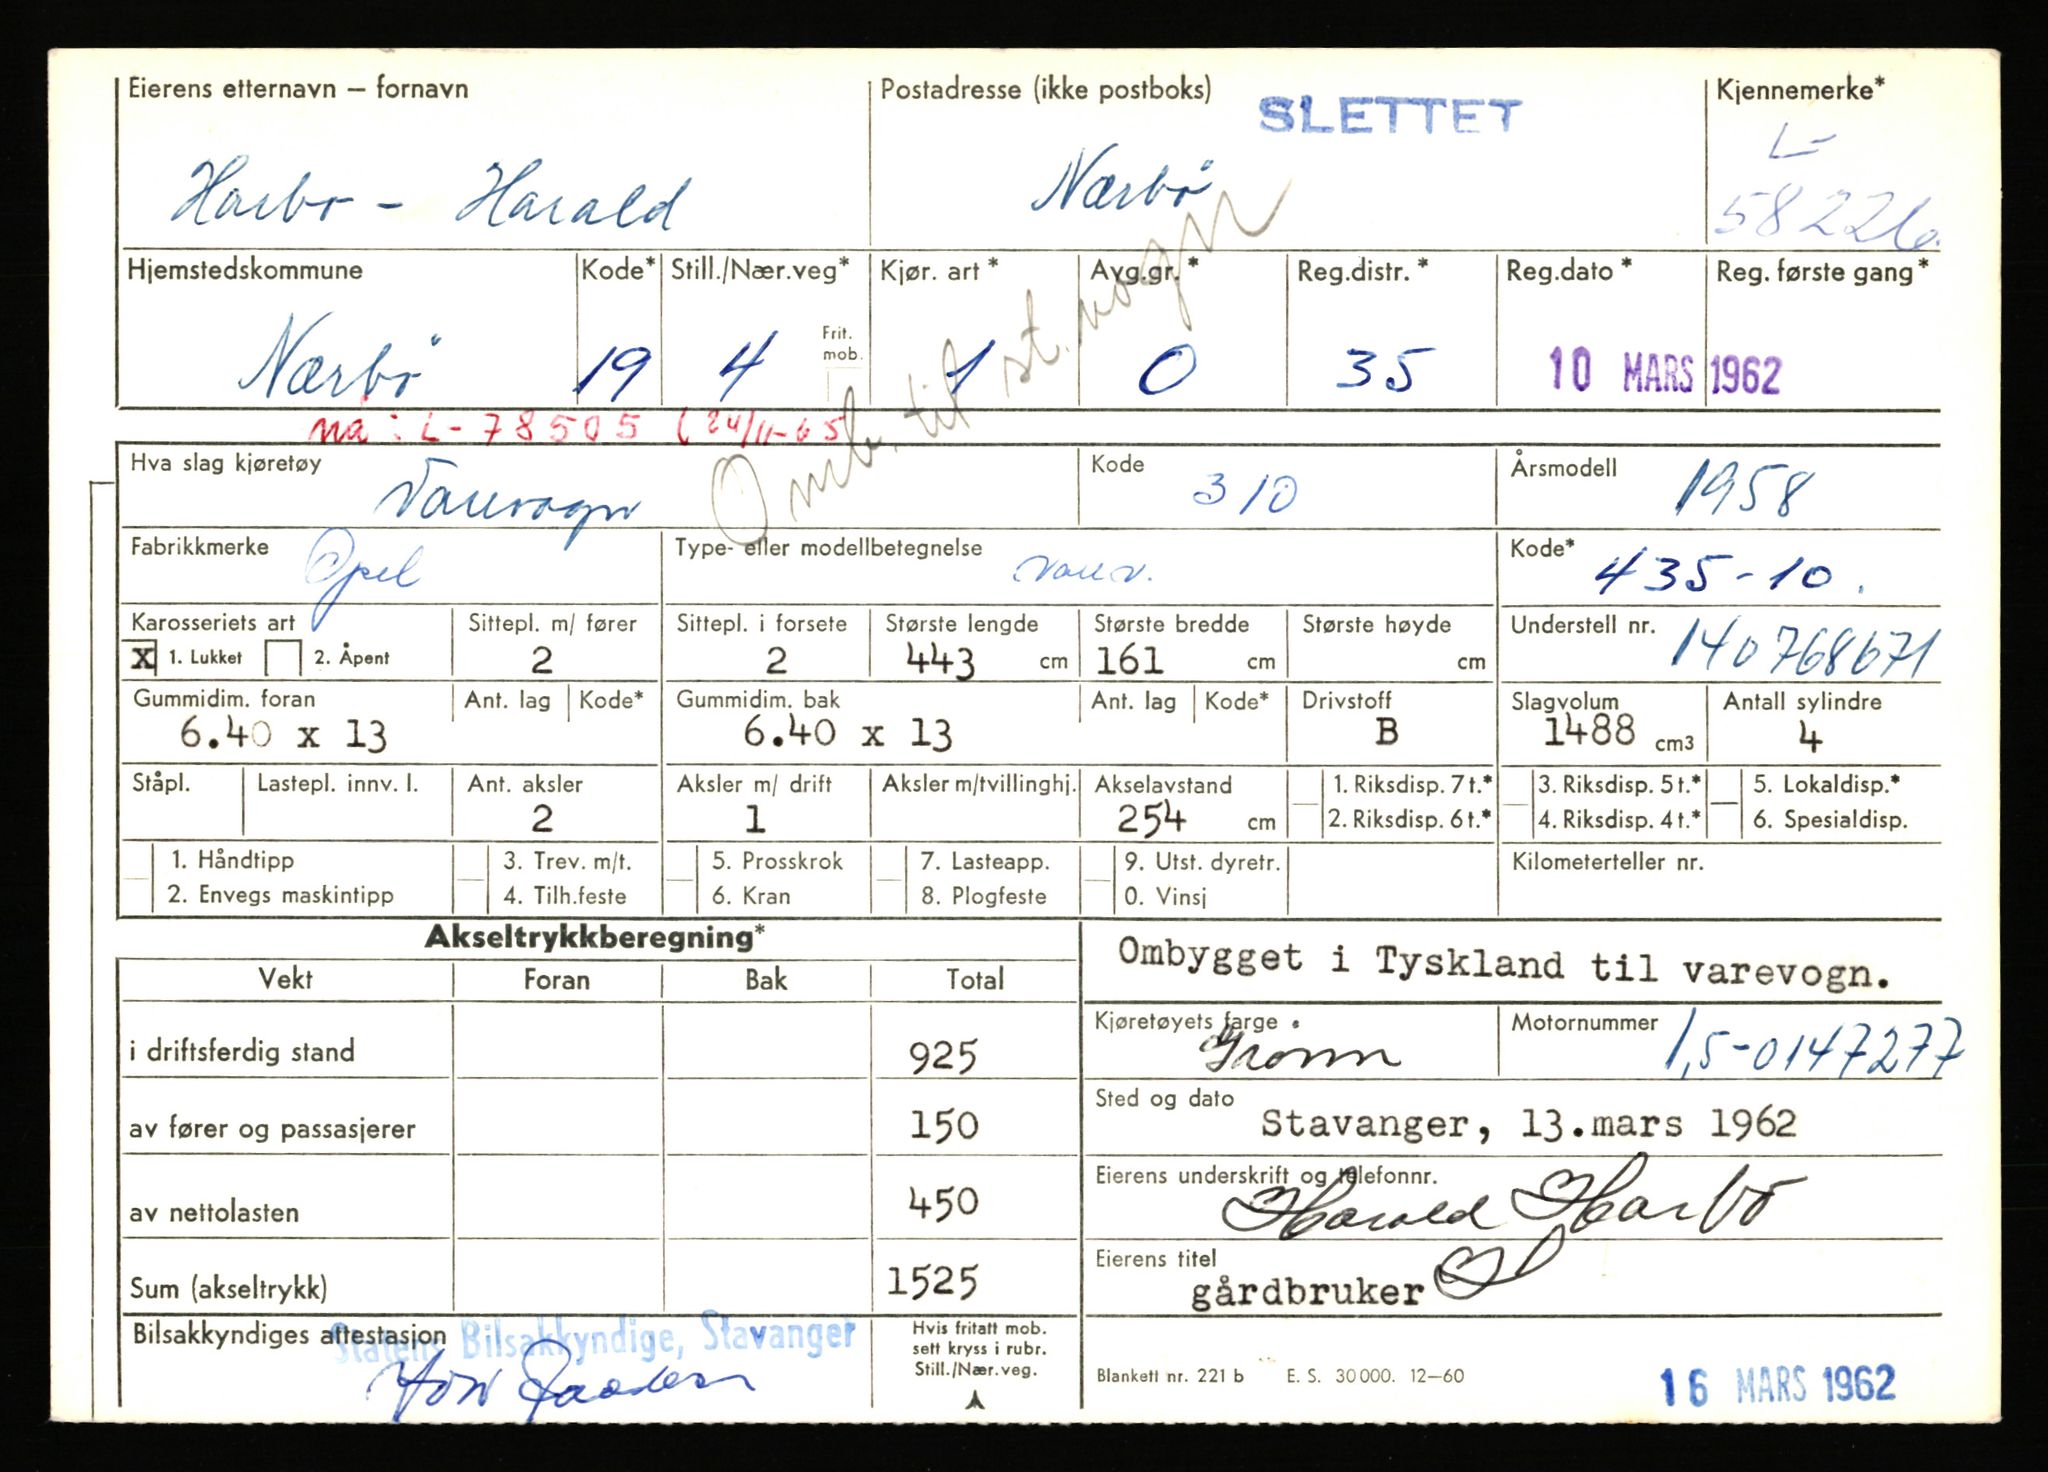 Eierens etternavn – fornavn Postadresse (ikke postboks) Kjennemerke*
SLETTET
L-
Harbo - Harald Nærbö 58226.
Hjemstedskommune Kode* Still./Nær.veg* Kjør. art * Avg.gr. * Reg.distr. * Reg.dato * Reg. første gang*
Frit. mob.
Nærbö 19 4 1 0 35 10 MARS 1962
nå: L-78505 (24/11-65
Omb. til st.vogn
Hva slag kjøretøy Kode Årsmodell
Varevogn 310 1958
Fabrikkmerke Type- eller modellbetegnelse Kode*
Opel varev. 435-10.
Karosseriets art Sittepl. m/ fører Sittepl. i forsete Største lengde Største bredde Største høyde Understell nr.
X 1. Lukket 2. Åpent 2 2 443 cm 161 cm cm 140768671
Gummidim. foran Ant. lag Kode* Gummidim. bak Ant. lag Kode* Drivstoff Slagvolum Antall sylindre
6.40 x 13 6.40 x 13 B 1488 cm3 4
Ståpl. Lastepl. innv. l. Ant. aksler Aksler m/ drift Aksler m/tvillinghj. Akselavstand 1. Riksdisp. 7 t.* 3. Riksdisp. 5 t.* 5. Lokaldisp.*
2 1 254 cm 2. Riksdisp. 6 t.* 4. Riksdisp. 4 t.* 6. Spesialdisp.
1. Håndtipp 3. Trev. m/t. 5. Prosskrok 7. Lasteapp. 9. Utst. dyretr. Kilometerteller nr.
2. Envegs maskintipp 4. Tilh.feste 6. Kran 8. Plogfeste 0. Vinsj
Akseltrykkberegning*
Ombygget i Tyskland til varevogn.
Vekt Foran Bak Total
Kjøretøyets farge Motornummer
i driftsferdig stand 925 Grønn 1,5-0147277
Sted og dato
av fører og passasjerer 150 Stavanger, 13.mars 1962
Eierens underskrift og telefonnr.
av nettolasten 450 Harald Harbö
Eierens titel
Sum (akseltrykk) 1525 gårdbruker
Bilsakkyndiges attestasjon
Statens Bilsakkyndige, Stavanger
Hvis fritatt mob.
sett kryss i rubr.
Still./Nær.veg.
Blankett nr. 221 b E. S. 30 000. 12–60
16 MARS 1962